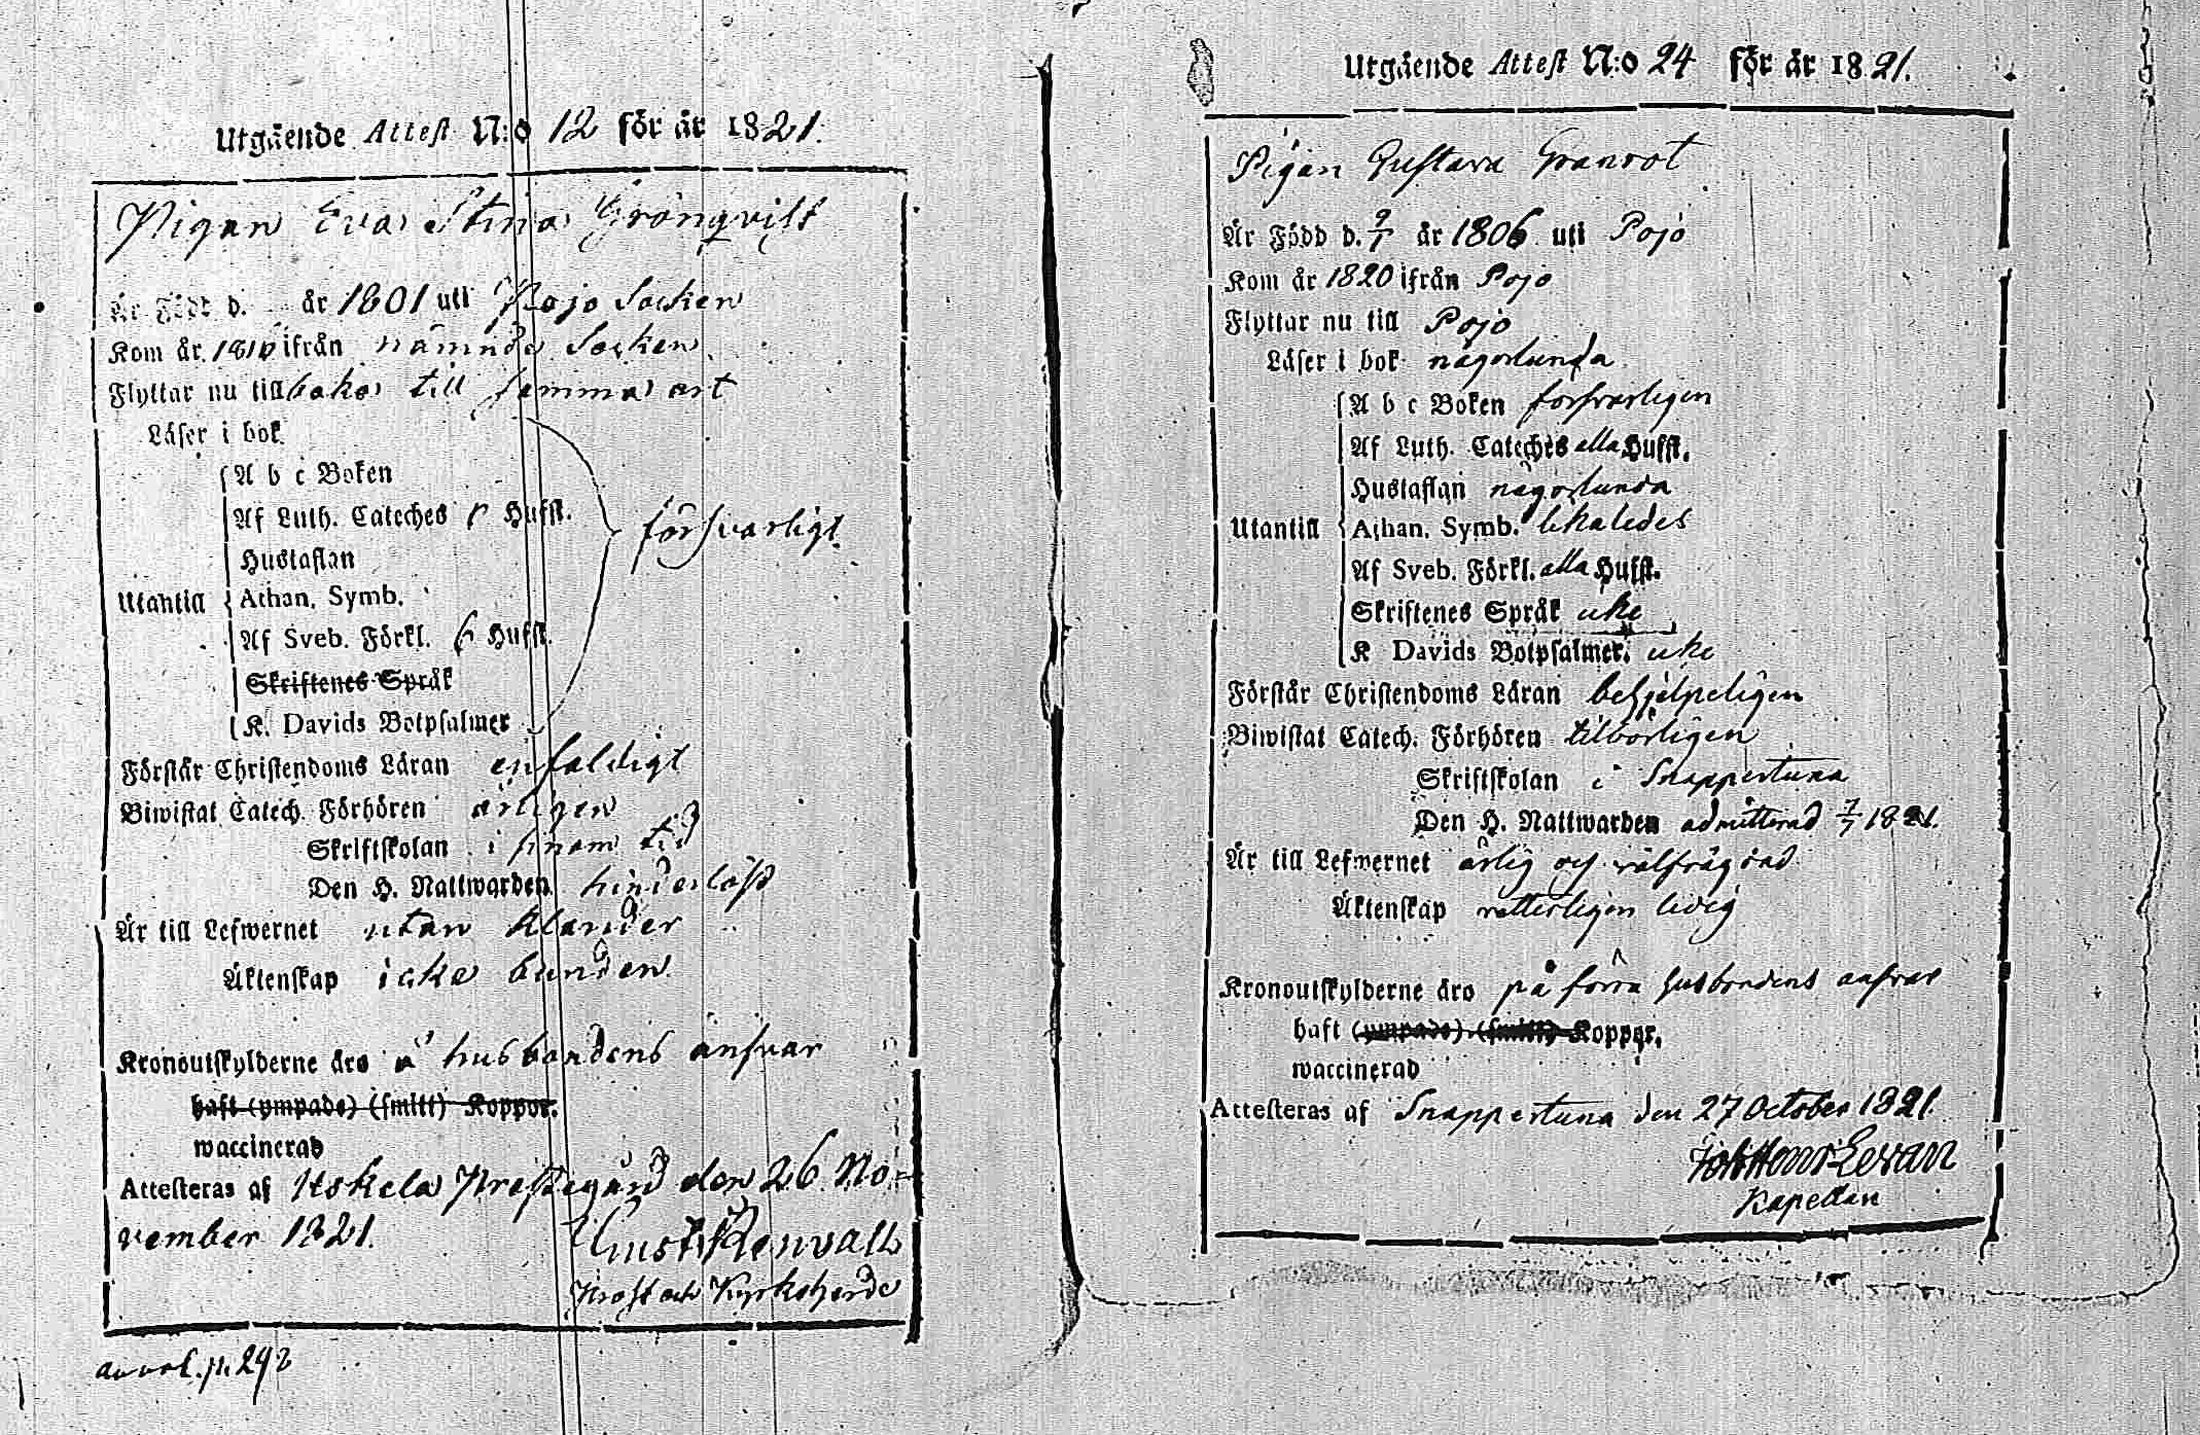 Utgående Attest N:o 12 för år 1821.
Pigan Eva Stina Grönqvist
Är Född d. år 1801 uti Pojo Socken
Kom år 1818 ifrån nämnde Socken
Flyttar nu till baka till samma ort
Läser i bok
A b c Boken
Af Luth. Cateches Hufst.
försvarligt
Hustaflan
Utantill
Athan. Symb.
Af Sveb. Förkl. 6 Hufst.
Skriftenes Språk
K. Davids Botpsalmer
Förstår Christendoms Läran enfaldigt
Biwistat Catech. Förhören ärligen
Skriftskolan i sinom tid
Den H. Nattwarden hinderlöst
Är till Lefwernet utan klander
Äktenskap icke bunden
Kronoutskylderne äro å husbondens ansvar
haft (ympade) (smitt) Koppor.
waccinerad
Attesteras af Uskela Prestegård den 26 No-
vember 1821.
Gust. Renvall
Prost och Kyrkoherde
Utgående Attest N:o 24 för år 1821.
Pigan Gustava Granrot
Är Född d. 9/1 år 1806 uti Pojo
Kom år 1820 ifrån Pojo
Flyttar nu till Pojo
Läser i bok någorlunda
A b c Boken försvarligen
Af Luth. Cateches alla Hufst.
Hustaflan någorlunda
Utantill Athan. Symb. likaledes
Af Sveb. Förkl. alla Hufst.
Skriftenes Språk icke
K Davids Botpsalmer. icke
Förstår Christendoms Läran behjelpeligen
Biwistat Catech. Förhören tilbörligen
Skriftskolan i Snappertuna
Den H. Nattwarden admitterad 7/7 1821.
Är till Lefwernet ärlig och välfrägdad
Äktenskap vetterligen ledig
Kronoutskylderne äro på förra husbondens ansvar
haft (ympade) (smitt) Koppor.
waccinerad
Attesteras af Snappertuna den 27 October 1821.
Kapellan